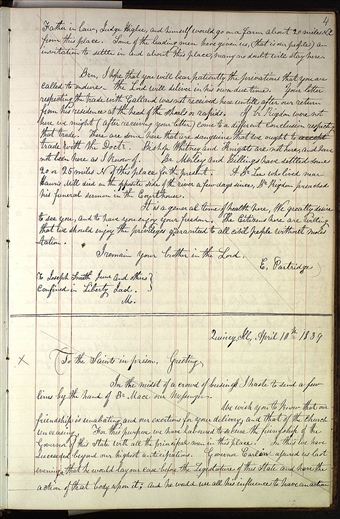 4
Father in law, Judge Higbee, and himself would go on a farm about 20 miles N.E.
from this place. Some of the leading men have given us, (that is our people) an
invitation to settle in and about this place, many no doubt will stay here.
Bro. I hope that you will bear patiently the privations that you are
called to endure. the Lord will deliver in his own due time. Your letter
respecting the trade with Galland was not received here until after our return
from his residence, at the head of the shoals or rapids. If Br Rigdon were not
here we might (after receiving your letter) come to a different conclusion respecting
that trade. There are some here that are sanguine that we ought to
trade with the Doctr. Bishop Whitney and Knights are not here, and have
not been here as I know of. Br. Morley and Billings have settled some
20 or 25 miles N of this place for the present. A Br. Lee who lived near
Hauns Mill died on the opposite side of the river a few days since, Br Rigdon preached
his funeral sermon in the Courthouse.
It is a general time of health here, We greatly desire
to see you, and to have you enjoy your freedom, The Citizens here are willing
that we should enjoy the privileges guaranted to all civil people without moles
tation.
I remain your brother in the Lord.
E. Partridge
To Joseph Smith Junr and others
Confined in Liberty Jail.
Mo.
Quincy Ill, April 10th 1839
To the Saints in prison, Greeting,
In the midst of a crowd of business I haste to send a few
lines by the hand of Br. Mace our Messenger.
We wish you to know that our
friendship is unabating and our exertions for your delivery, and that of the church
unceasing. For this purpose we have labored to secure the friendship of the
Governor of this State with all the principle men in this place. In this we have
succeeded beyond our highest anticipations. Governor Carlin assured us last
evening, that he would lay our case before the Legislature of this State and have the
action of that body upon it; and he would use all his influence to have an action